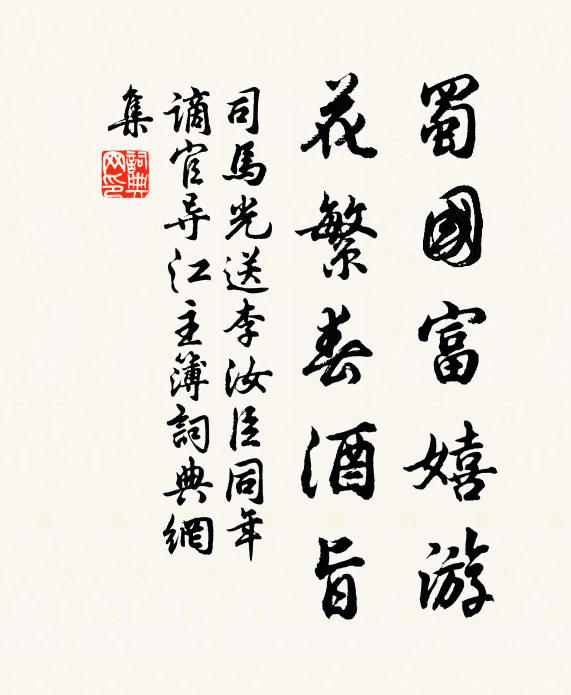 蜀國富嬉游
花繁春酒旨
司馬光送李汝臣同年
谪官导江主簿詞典網
集
詞典網印